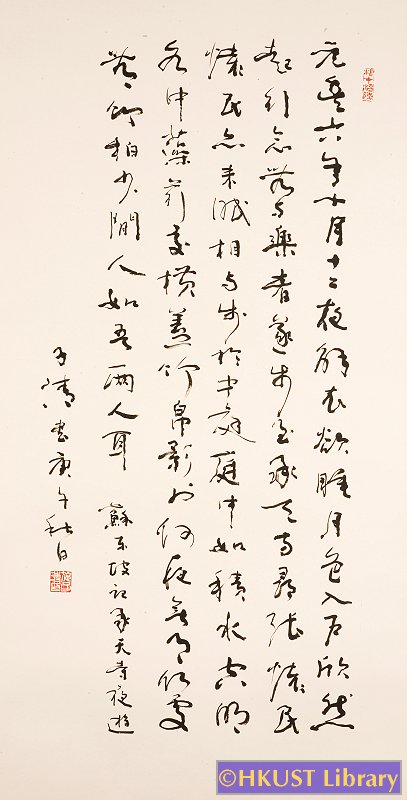 元豐六年十月十二夜解衣欲睡月色入户欣然
起行念無与樂者遂步至承天寺尋張懷民
懷民亦未寢相与步於中庭庭中如積水空明
水中藻荇交橫蓋竹柏影也何夜無月何處
無竹柏少閒人如吾兩人耳 蘇东坡記承天寺夜遊
子清書庚午秋日
©HKUST Library